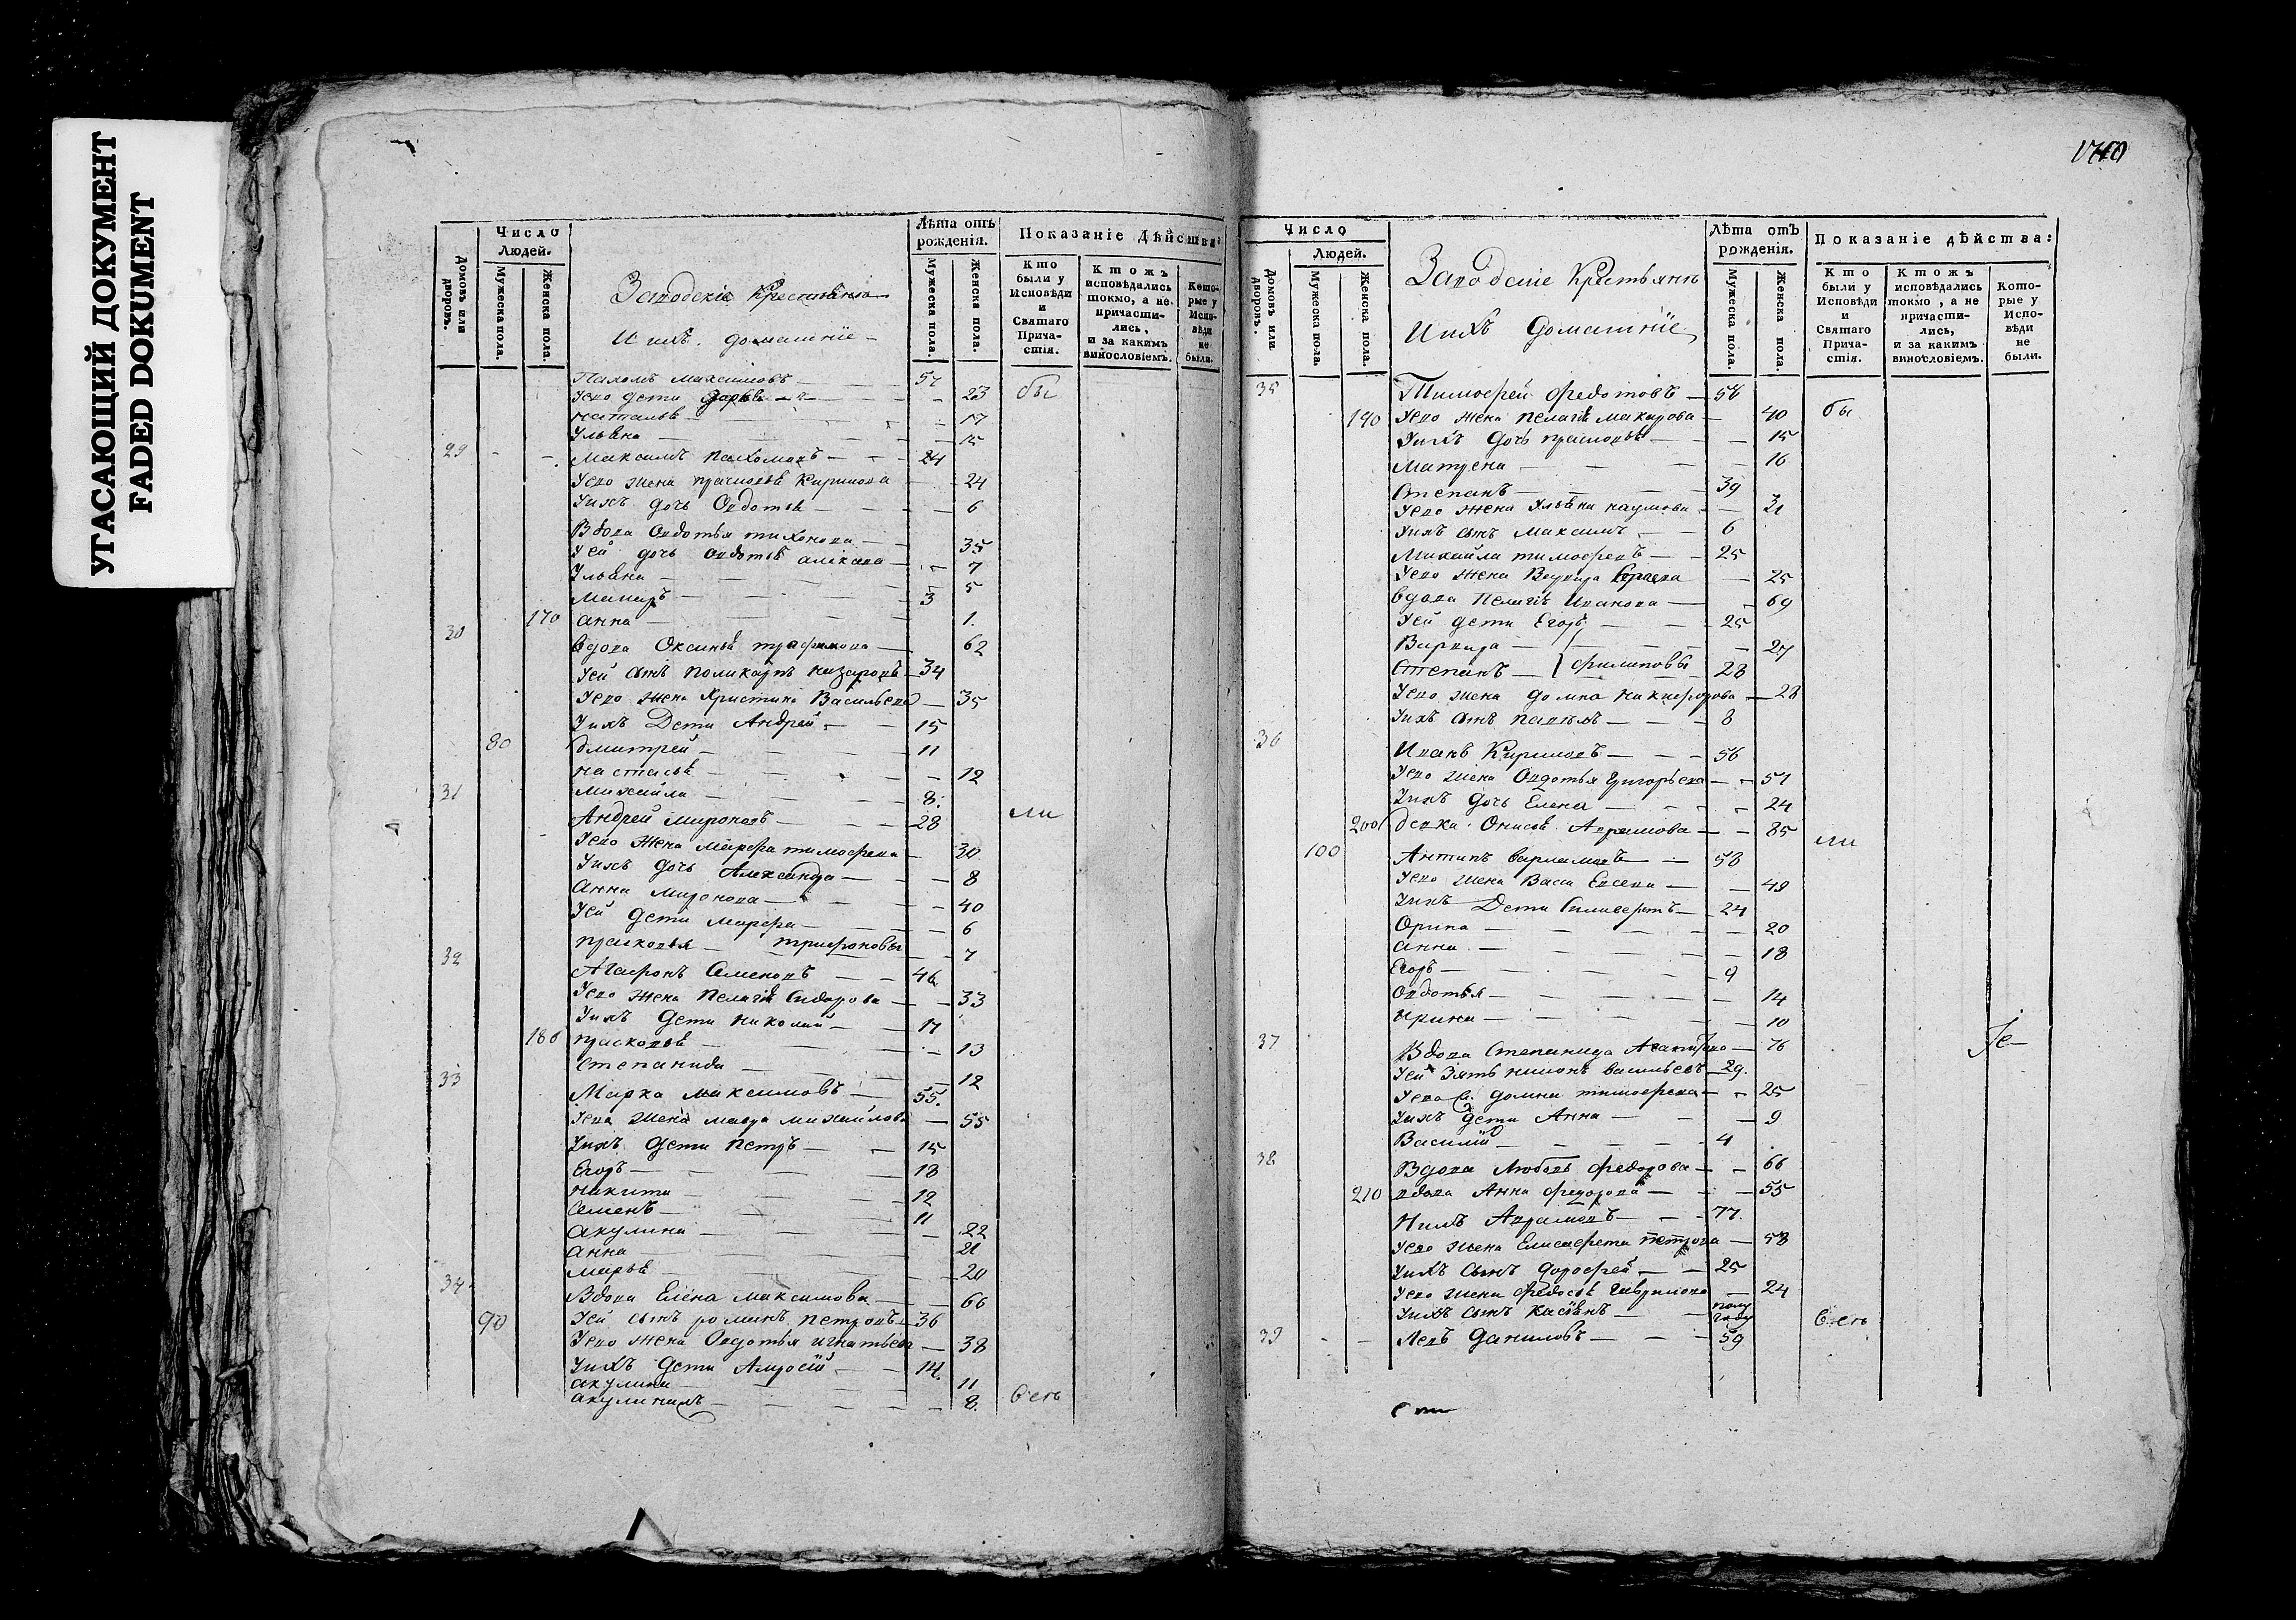 УГАСАЮЩИЙ ДОКУМЕНТ
FADED DOKUMENT
Число
Людей.
Домовъ или дворовъ.
Мужеска пола.
Женска пола.
Заводскіе Крестьяна
И ихъ домашніе
Лѣта отъ рожденія.
Мужеска пола.
Женска пола.
Показаніе дѣйства:
Кто были у Исповѣди и Святаго Причастія.
Ктожъ исповѣдались токмо, а не причастились, и за какимъ винословіемъ.
Которые у Исповѣди не были.
Пахомъ Максимовъ 57
Уево дети 23 бы
Наталья 17
Ульяна 15
29 Максимъ Пахомовъ 24
Уево жена прасковья Кирилова 24
Уихъ дочь Овдотья 6
Вдова Овдотья тихонова 35
Уей дочь Овдотья 7
Ульяна 5
Макаръ 3
170 Анна 1.
30 Вдова Оксинья трафимова 62
Уей сынъ поликарпъ назаровъ 34
Уево жена Христина Васильева 35
Уихъ Дети Андрей 15
80 Дмитрей 11
настасья 12
Михайла 8.
31 Андрей Мироновъ 28 ли
Уево жена Марфа тимофеева 30
Уихъ дочь Александра 8
Анна Миронова 40
Уей дети Марфа 6
прасковья трифоновы 7
32 Агафонъ Семеновъ 46
Уево жена Пелагія Сидорова 33
Уихъ дети николай 17
180 прасковья 13
Степанида 12
33 Марка Максимовъ 55.
Уево жена мавра михайлова 55
Уихъ дети Петръ 15
Егоръ 18
никита 12
Семенъ 11
акулина 22
анна 21
марья 20
34 Вдова Елена максимова 66
90 Уей сынъ романъ петровъ 36
Уево жена Овдотья игнатьева 38
Уихъ дети Амросій 14.
акулина 11
акулина 8. всеи
Число
Людей.
Домовъ или дворовъ.
Мужеска пола.
Женска пола.
Заводскіе Крестьянѣ
Ихъ домашніе
Лѣта отъ рожденія.
Мужеска пола.
Женска пола.
Показаніе дѣйства:
Кто были у Исповѣди и Святаго Причастія.
Ктожъ исповѣдались токмо, а не причастились, и за какимъ винословіемъ.
Которые у Исповѣди не были.
35 Тимофей федотовъ 56
190 Уево жена пелагія макарова 40 бы
Уихъ дочь прасковья 15
Матрена 16
Степанъ 39
Уево жена Ульяна наумова 31
Уихъ сынъ Максимъ 6
Михайла тимофеевъ 25
Уево жена Варвара Сергеева 25
Вдова Пелагія Иванова 69
Уей дети Егоръ 25
Варвара 27
Степанъ филиповы 28
Уево жена домна никифорова 28
Уихъ сынъ павелъ 8
36 Иванъ Кириловъ 56
Уево жена Овдотья Григорьева 51
Уихъ дочь Елена 24
200 девка Анисья Аврамова 85
100 Антипъ Варламовъ 58 ли
Уево жена Васа Евсеева 49
Уихъ Дети Силиверстъ 24
Орина 20
анна 18
Егоръ 9
Овдотья 14
Ирина 10
37 Вдова Степанида 76 Не
Уей зять никонъ васильевъ 29.
Уево ж. домна тимофеева 25
Уихъ дети Анна 9
Василій 4
38 Вдова Любовь федорова 66
210 вдова Анна федорова 55
Нилъ Аврамовъ 77.
Уево жена Елисавета петрова 58
Уихъ сынъ дорофей 25
Уево жена федосья Гаврилова 24
Уихъ сынъ Касіянъ полу года
39 Левъ Даниловъ 59 всеи